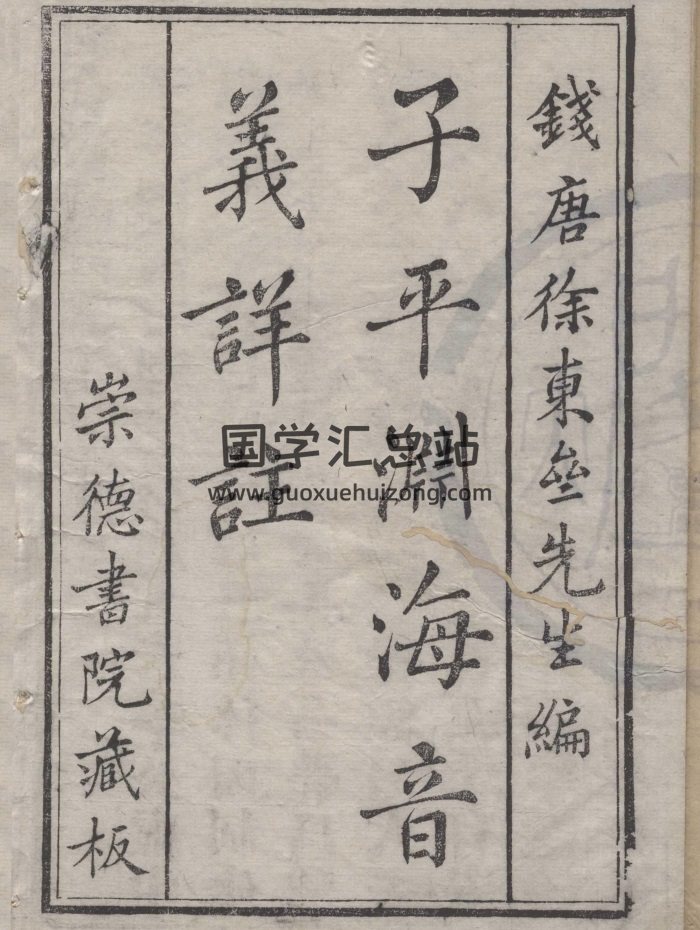 錢唐徐東壂先生編
子平淵海音
義詳註
崇德書院藏板
国学汇总站
www.guoxuehuizong.com